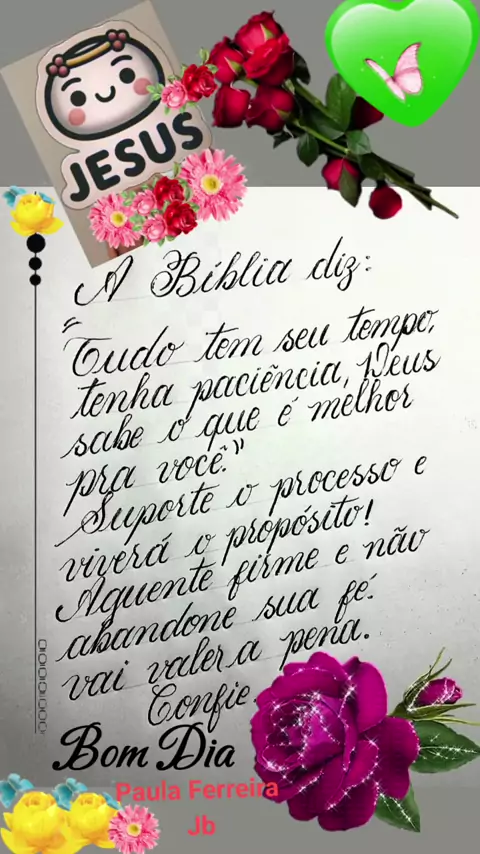 JESUS
A Bíblia diz:
"Tudo tem seu tempo,
tenha paciência, Deus
sabe o que é melhor
pra você."
Suporte o processo e
viverá o propósito!
Aguente firme e não
abandone sua fé.
vai valer a pena.
Confie
Bom Dia
Paula Ferreira
Jb